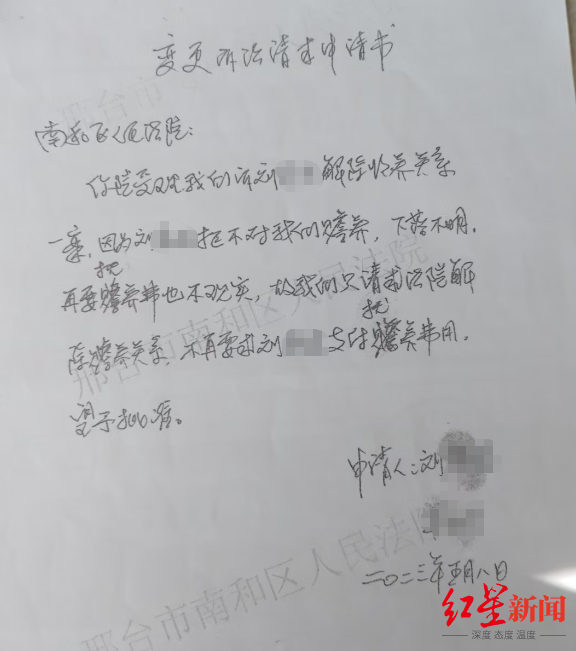 变更诉讼请求申请书
南和区人民法院:
你院受理我们诉刘 解除收养关系
一案,因为刘 拒不对我们赡养,下落不明,
再要抚赡养费也不现实,故我们只请求法院解
除赡养关系,不再要求刘 支付抚赡养费用。
望予批准。
申请人:刘
二〇二三年五月八日
邢台市南和区人民法院
邢台市南和区人民法院
邢台市南和区人民法院
红星新闻
深度 态度 温度